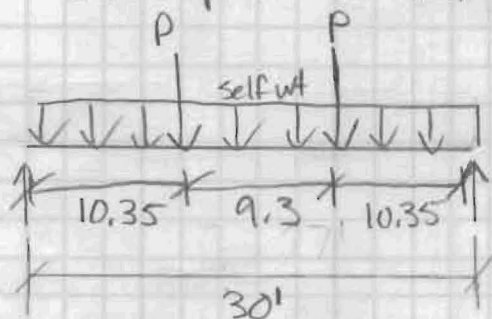 P P
self wt
10.35 9.3 10.35
30'